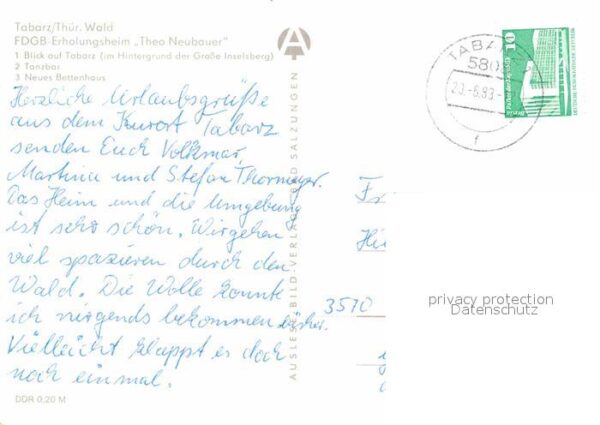 Tabarz/Thür. Wald
FDGB-Erholungsheim „Theo Neubauer"
1 Blick auf Tabarz (im Hintergrund der Große Inselsberg)
2 Tanzbar
3 Neues Bettenhaus
Herzliche Urlaubsgrüße
aus dem Kurort Tabarz
senden Euch Volkmar,
Martina und Stefan Thormeyer.
Das Heim und die Umgebung
ist sehr schön. Wir gehen
viel spazieren durch den
Wald. Die Wolle konnte
ich nirgends bekommen bisher.
Vielleicht klappt es doch
noch einmal.
DDR 0,20 M
AUSLESE-BILD-VERLAG BAD SALZUNGEN
A
TABARZ
580
-6.83-
f
10
3570
privacy protection
Datenschutz